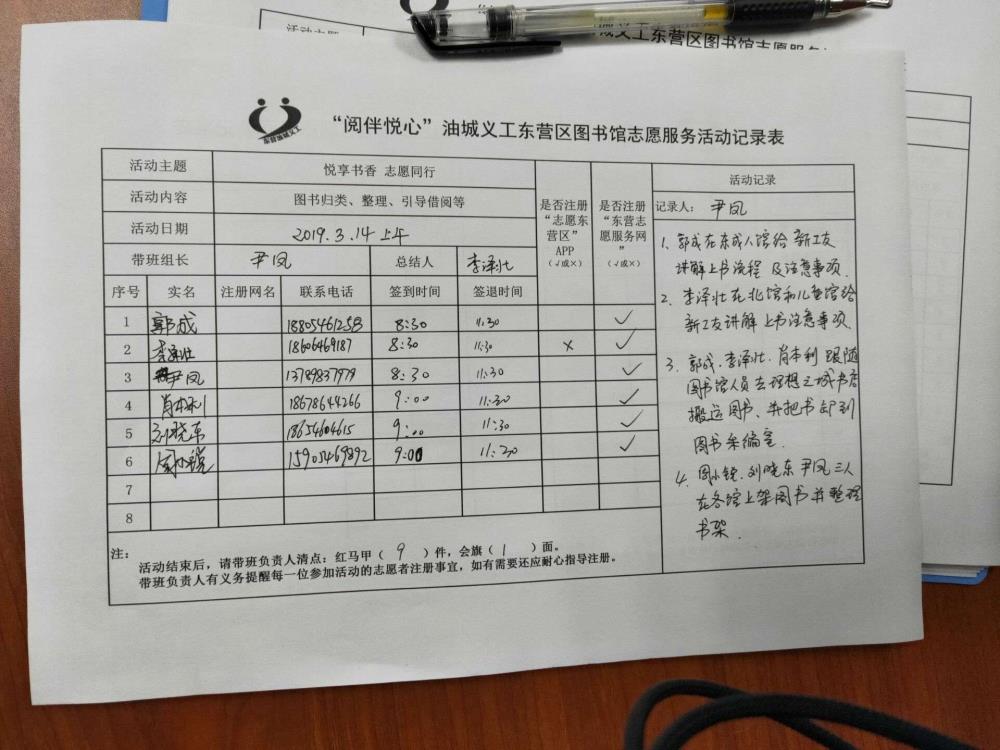 活动主题
义工东营区图书馆志愿服务
东营油城义工
“阅伴悦心”油城义工东营区图书馆志愿服务活动记录表
活动主题 悦享书香 志愿同行
活动内容 图书归类、整理、引导借阅等
活动日期 2019.3.14上午
带班组长 尹凤 总结人 李泽壮
是否注册“志愿东营区”APP（√或×）
是否注册“东营志愿服务网”（√或×）
序号 实名 注册网名 联系电话 签到时间 签退时间
1 郭成 18805461258 8:30 11:30 √
2 李泽壮 18606469187 8:30 11:30 × √
3 尹凤 13789837979 8:30 11:30 √
4 肖本利 18678644266 9:00 11:30 √
5 刘晓东 18654604615 9:00 11:30 √
6 周小锐 15905469892 9:00 11:30 √
7
8
注：
活动结束后，请带班负责人清点：红马甲（ 9 ）件，会旗（ 1 ）面。
带班负责人有义务提醒每一位参加活动的志愿者注册事宜，如有需要还应耐心指导注册。
活动记录
记录人：尹凤
1、郭成在东成人馆给新工友
讲解上书流程及注意事项.
2、李泽壮在北馆和儿童馆给
新工友讲解上书注意事项.
3、郭成.李泽壮.肖本利跟随
图书馆人员去理想之城书店
搬运图书、并把书卸到
图书采编室.
4、周小锐.刘晓东 尹凤三人
在各馆上架图书并整理
书架.